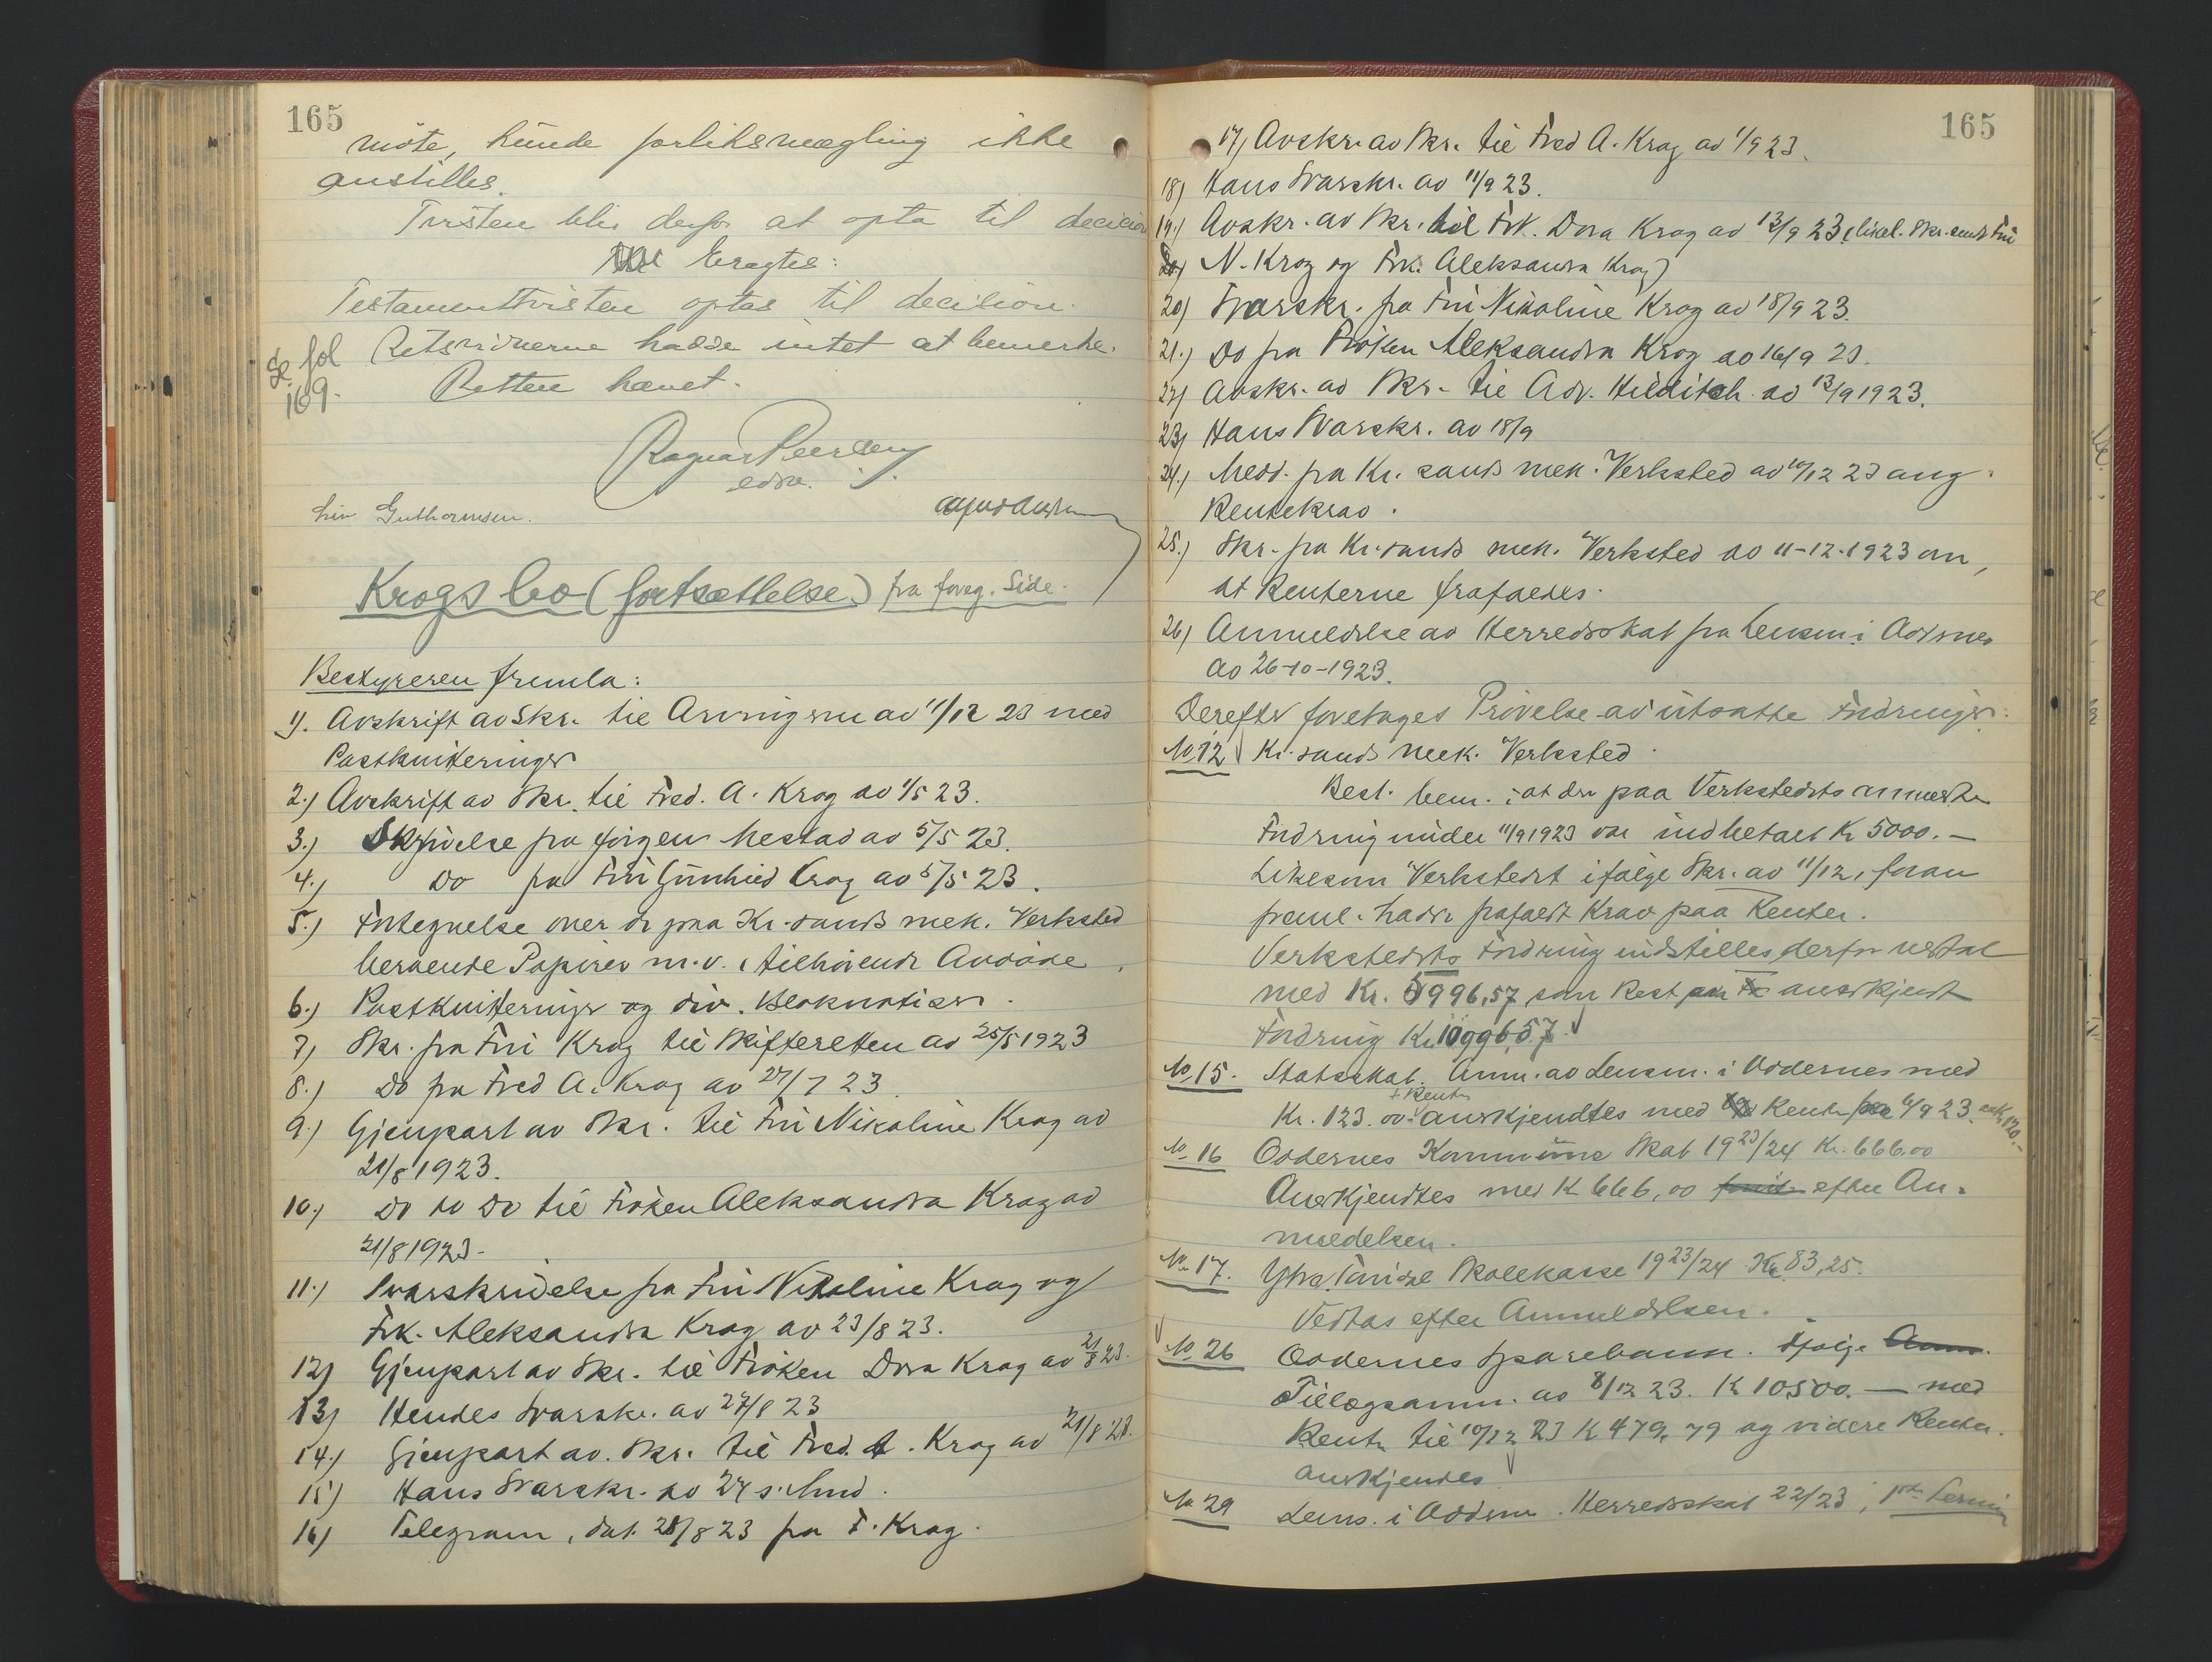 165
møte, kunde forliksmægling ikke
anstilles.
Tvisten blir derfor at opta til decision
Eragtes:
Testamenttvisten optas til decision.
Retsvidnerne hadde intet at bemerke.
Se fol
169.
Retten hævet.
Ragnar
edsv.
Guthormsen.
Krogs bo (fortsættelse) fra foreg. Side.
Bestyreren fremla:
1). Avskrift av Skr. til Arvingerne av 11/12 23 med
Postkvitteringer
2.) Avskrift av Skr. til Fred. A. Krog av 1/5 23.
3.) Skrivelse fra Jørgen Mestad av 5/5 23.
4.) Do fra Fru Gunhild Krog av 5/5 23.
5.) Fortegnelse over de paa Kr.sands mek. Verksted
beroende Papirer m.v. tilhørende Avdøde.
6.) Postkvitteringer og div. Bloknotiser.
7) Skr. fra Fru Krog til Skifteretten av 25/5 1923
8.) Do fra Fred A. Krog av 27/7 23.
9.) Gjenpart av Skr. til Fru Nikoline Krog av
21/8 1923.
10.) Do av Do til Frøken Aleksandra Krog av
21/8 1923.
11.) Svarskrivelse fra Fru Nikoline Krog og
Frk. Aleksandra Krog av 23/8 23.
12) Gjenpart av Skr. til Frøken Dora Krog av 21/8 23.
13) Hendes Svarskr. av 27/8 23
14.) Gjenpart av. Skr. til Fred. A. Krog av 21/8 23.
15) Hans Svarskr. av 24 s. Mnd.
16) Telegram, dat. 28/8 23 fra F. Krog.
165
17) Avskr. av Skr. til Fred A. Krog av 1/9 23.
18) Hans Svarskr. av 11/9 23.
19.) Avskr. av Skr. til Frk. Dora Krog av 13/9 23 (likel. Skr. sendt Fru
N. Krog og Frk. Aleksandra Krog)
20) Svarskr. fra Fru Nikoline Krog av 18/9 23.
21.) Do fra Frøken Aleksandra Krog av 16/9 23.
22) Avskr. av Skr. til Adv. Hilditch av 13/9 1923.
23) Hans Svarskr. av 18/9
24.) Medd. fra Kr.sands mek. Verksted av 10/12 23 ang.
Rentekrav.
25.) Skr. fra Kr.sands mek. Verksted av 11-12-1923 om,
at Renterne frafaldes.
26) Anmeldelse av Herredsskat fra Lensm. i Oddernes
av 26-10-1923.
Derefter foretages Prøvelse av utsatte Fordringer.
No 12 Kr.sands mek. Verksted.
Best. bem. at der paa Verkstedets anmeldte
Fordring under 11/9 1923 var indbetalt Kr 5000.—
Likesom Verkstedet ifølge Skr. av 11/12, foran
freml. hadde frafaldt Krav paa Renter.
Verkstedets Fordring indstilles derfor vedtat
med Kr. 5996,57 som Rest anerkjendt
Fordring Kr. 10996,57.
No 15. Statsskat. Anm. av Lensm. i Oddernes med
+ Renter
Kr. 123.00 anerkjendtes med Renter fra 6/9 23.
No 16 Oddernes Kommune Skat 1923/24 Kr. 666.00
Anerkjendtes med Kr 666,00 efter An-
meldelsen.
No 17. Ytre Skolekasse 1923/24 Kr. 83,25.
Vedtas efter Anmeldelsen.
No 26 Oddernes Sparebank. Ifølge Anm.
Tillægsanm. av 8/12 23. Kr 10500.— med
Renter til 10/12 23 Kr 479,79 og videre Renter.
anerkjendes
No 29 Lens. i Oddernes. Herredsskat 22/23, 1ste Termin